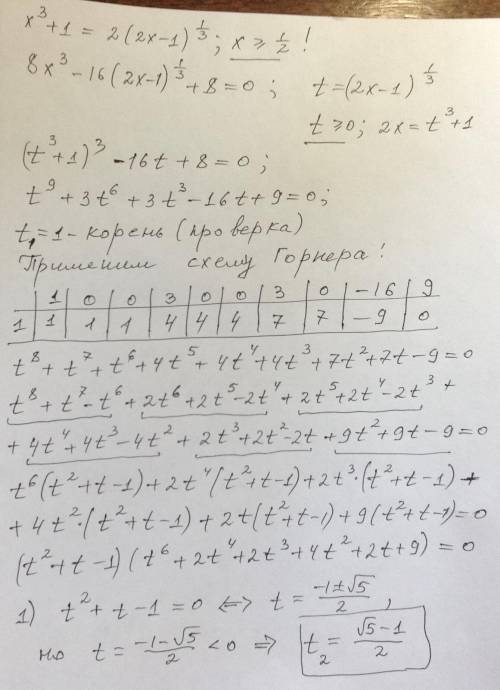 x³+1 = 2(2x-1)^{1/3}; x ≥ 1/2 !
8x³-16(2x-1)^{1/3}+8=0; t=(2x-1)^{1/3}
t≥0; 2x=t³+1
(t³+1)³-16t+8=0;
t⁹+3t⁶+3t³-16t+9=0;
t₁=1- корень (проверка)
Применим схему Горнера!
| | 1 | 0 | 0 | 3 | 0 | 0 | 3 | 0 | -16 | 9
1 | 1 | 1 | 1 | 4 | 4 | 4 | 7 | 7 | -9 | 0
t⁸+t⁷+t⁶+4t⁵+4t⁴+4t³+7t²+7t-9=0
t⁸+t⁷-t⁶+2t⁶+2t⁵-2t⁴+2t⁵+2t⁴-2t³+
+4t⁴+4t³-4t²+2t³+2t²-2t+9t²+9t-9=0
t⁶(t²+t-1)+2t⁴(t²+t-1)+2t³·(t²+t-1)+
+4t²·(t²+t-1)+2t(t²+t-1)+9(t²+t-1)=0
(t²+t-1)(t⁶+2t⁴+2t³+4t²+2t+9)=0
1) t²+t-1=0 ⇔ t=(-1±√5)/2,
но t=(-1-√5)/2 <0 ⇒ t₂=(√5-1)/2